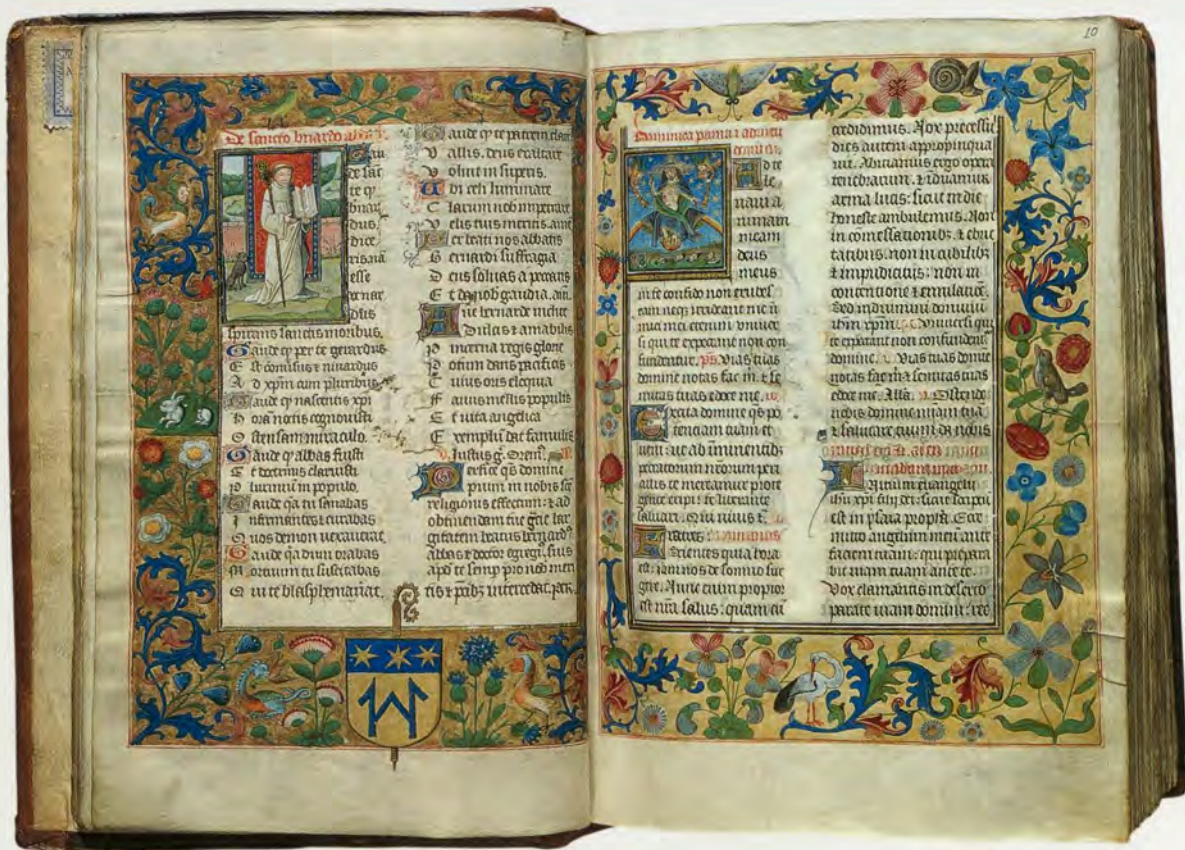 De sancto bnardo abbate
Gau
de sac
te q
bnar
dus
dice
ris aia
esse
vernar
dplis
spirans sanctis moribus.
Gaude q per te gerardus
Est conusus et niuardus
Ad xpm cum pluribus.
Gaude q nascentis xpi
horā noctis cognouisti
Ostensam miraculo.
Gaude q abbas fuisti
Et doctrinis claruisti
lucrum in populo.
Gaude qa tu sanabas
Infirmantes et curabas
Quos demon uexauerat.
Gaude qa dum orabas
Mortuum tu suscitabas
Qui te blasphemauerat.
Gaude q te patrem clare
Vallis. deus exaltare
Voluit in superis.
celi luminare
Clarum nob impetrare
Velis tuis meritis. amē
beati nos abbatis
Bernardi suffragia
Deus soluas a peccatis
Et des nob gaudia. am.
Aue bernarde inclite
Dulcis et amabilis
lucerna regis glorie
potum dans pacificis
Cuius oris eloquia
fauus mellis populis
Et uita angelica
Exemplū dat famulis
Justus g. Orem.
Perfice qs domine
pium in nobis scē
religionis effectum: et ad
obtinendam tue grē lar
gitatem beatus bernard9
abbas et doctor egregi9. tuus
apd te semp pro nob meri
tis et pcibz intercedat. per.
10
Dominica prima i aduētu
domini.
Ad te
le
uaui a
nimam
meam
deus
meus
in te confido non erubes
cam neqz irrideant me in
imici mei etenim vniuer
si qui te expectant non con
fundentur. ps. Vias tuas
domine notas fac m. et se
mitas tuas edoce me. v.
Excita domine qs po
tentiam tuam et
ueni: ut ab iminentibz
peccatorum nrorum peri
culis te mereamur prote
gente eripi: te liberante
saluari. Qui uiuis et.
Fratres. Ad romanos
Scientes quia hora
est: iam nos de somno sur
gere. Nunc enim propior
est nra salus: quam cū
credidimus. Nox precessit
dies autem appropinqua
uit. Abiciamus ergo opera
tenebrarum. et induamur
arma lucis: sicut in die
honeste ambulemus. Non
in comessationibz et ebrie
tatibus. non in cubilibz
et impudicitijs: non in
contentione et emulatiōe.
Sed induimini dominū
ihm xpm. Vniuersi qui
te expectant non confundent
domine. v. Vias tuas domie
notas fac m. et semitas tuas
edoce me. Alla. v. Ostende
nobis domine miam tuā
et salutare tuum da nobis
Initium euangelij
ihu xpi filij dei: sicut scriptū
est in ysaia propha. Ecce
mitto angelum meum ante
faciem tuam: qui prepara
bit uiam tuam ante te.
Vox clamantis in deserto
parate uiam domini: rec